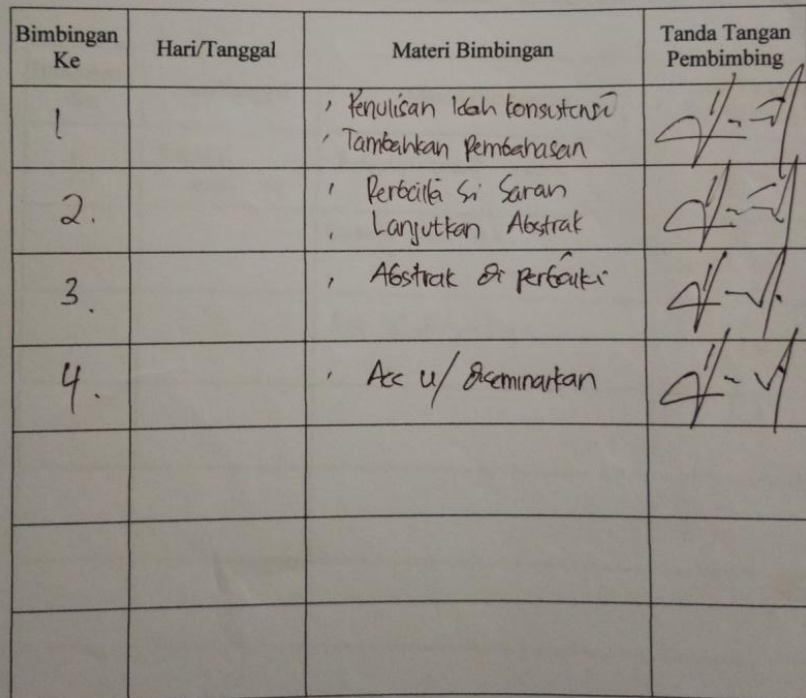 Bimbingan Ke
Hari/Tanggal
Materi Bimbingan
Tanda Tangan Pembimbing
1
, Penulisan konsistensi
, Tambahkan Pembahasan
2.
, Saran
. Lanjutkan Abstrak
3.
, Abstrak di perbaiki
4.
. Acc u/ diseminarkan